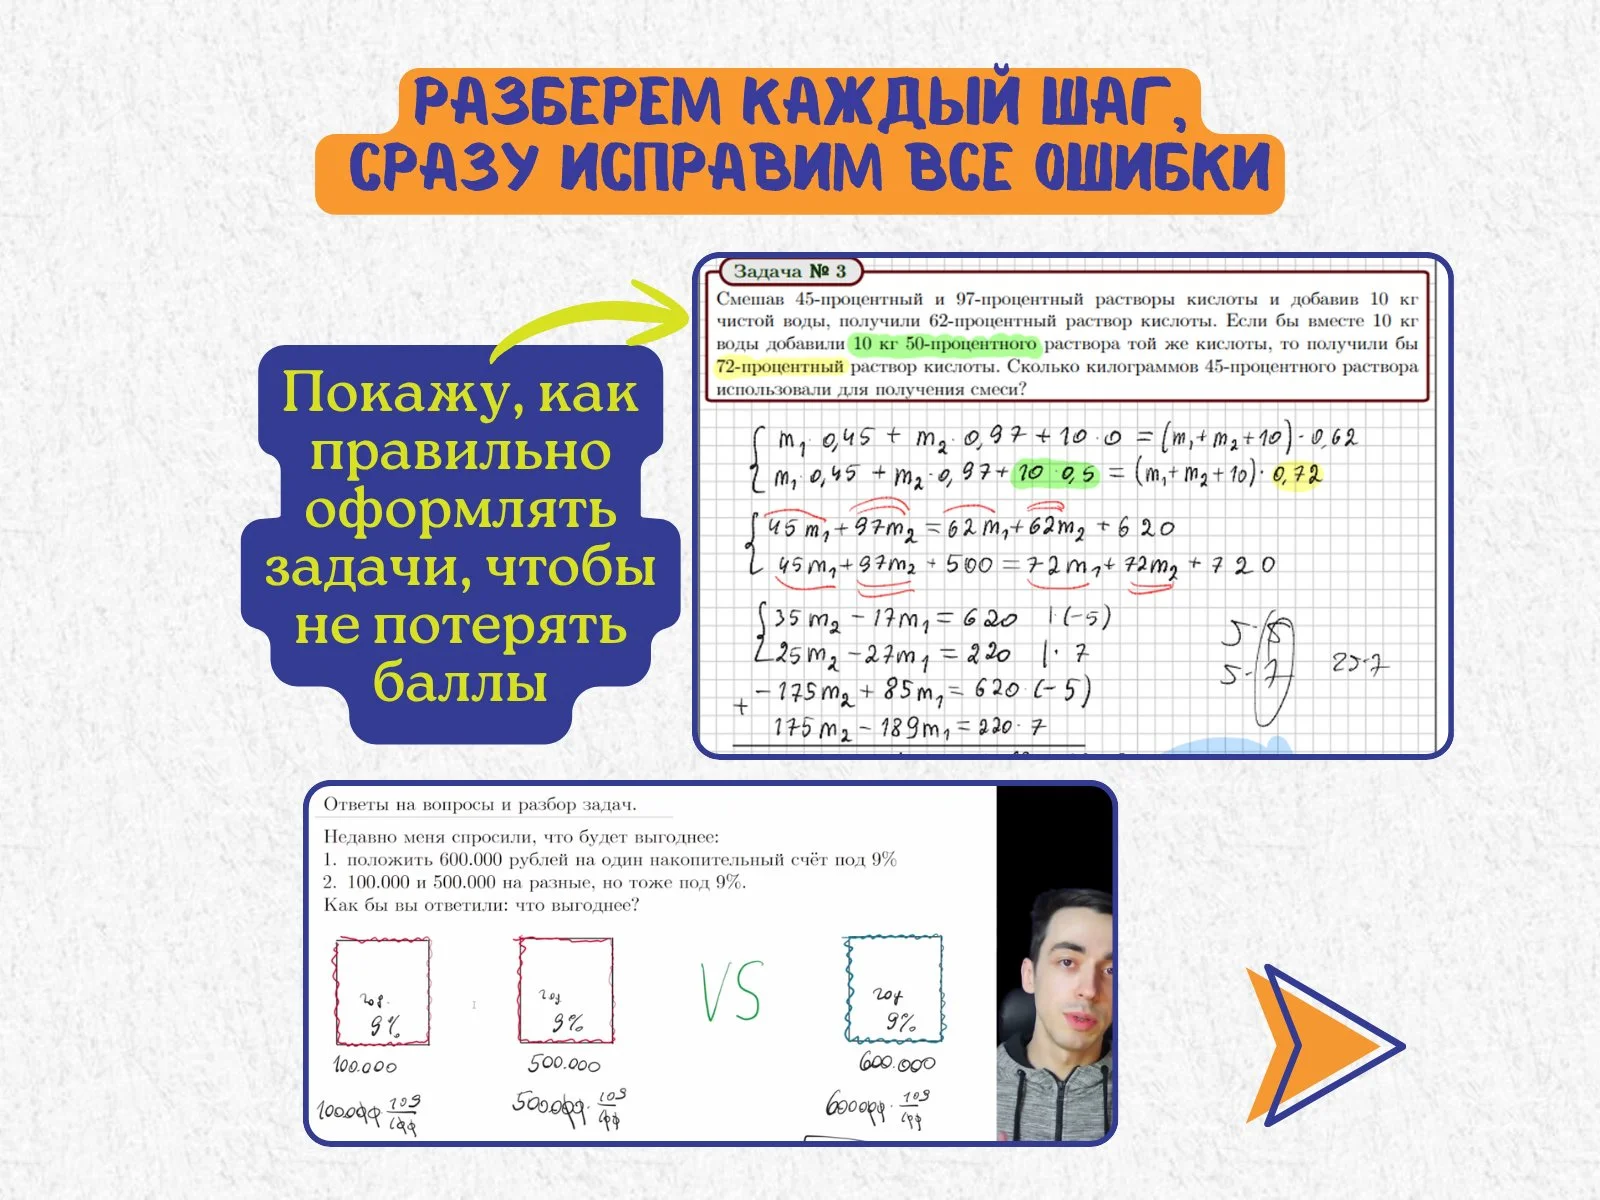 РАЗБЕРЕМ КАЖДЫЙ ШАГ,
СРАЗУ ИСПРАВИМ ВСЕ ОШИБКИ
Покажу, как
правильно
оформлять
задачи, чтобы
не потерять
баллы
Задача № 3
Смешав 45-процентный и 97-процентный растворы кислоты и добавив 10 кг
чистой воды, получили 62-процентный раствор кислоты. Если бы вместо 10 кг
воды добавили 10 кг 50-процентного раствора той же кислоты, то получили бы
72-процентный раствор кислоты. Сколько килограммов 45-процентного раствора
использовали для получения смеси?
m₁·0,45 + m₂·0,97 + 10·0 = (m₁+m₂+10)·0,62
m₁·0,45 + m₂·0,97 + 10·0,5 = (m₁+m₂+10)·0,72
45m₁ + 97m₂ = 62m₁ + 62m₂ + 620
45m₁ + 97m₂ + 500 = 72m₁ + 72m₂ + 720
35m₂ − 17m₁ = 620 |·(−5)
25m₂ − 27m₁ = 220 |·7
5·5
5·7
25·7
−175m₂ + 85m₁ = 620·(−5)
+
175m₂ − 189m₁ = 220·7
Ответы на вопросы и разбор задач.
Недавно меня спросили, что будет выгоднее:
1. положить 600.000 рублей на один накопительный счёт под 9%
2. 100.000 и 500.000 на разные, но тоже под 9%.
Как бы вы ответили: что выгоднее?
год
9%
год
9%
VS
год
9%
100.000
500.000
600.000
100000·109/100
500000·109/100
600000·109/100